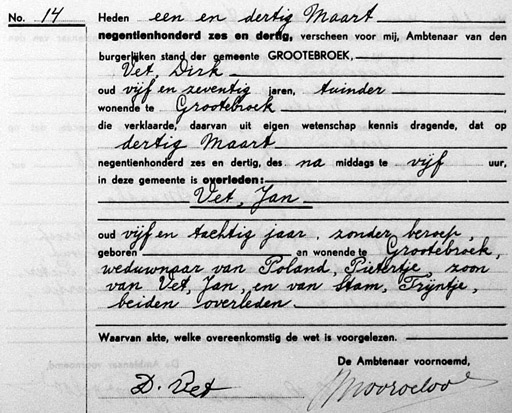 No. 14 Heden een en dertig Maart
negentienhonderd zes en dertig, verscheen voor mij, Ambtenaar van den
burgerlijken stand der gemeente GROOTEBROEK,
Vet, Dirk
oud vijf en zeventig jaren, tuinder
wonende te Grootebroek
die verklaarde, daarvan uit eigen wetenschap kennis dragende, dat op
dertig Maart
negentienhonderd zes en dertig, des na middags te vijf uur,
in deze gemeente is overleden:
Vet, Jan
oud vijf en tachtig jaar, zonder beroep,
geboren en wonende te Grootebroek,
weduwnaar van Poland, Pietertje, zoon
van Vet, Jan, en van Stam, Trijntje,
beiden overleden.
Waarvan akte, welke overeenkomstig de wet is voorgelezen.
De Ambtenaar voornoemd,
D. Vet